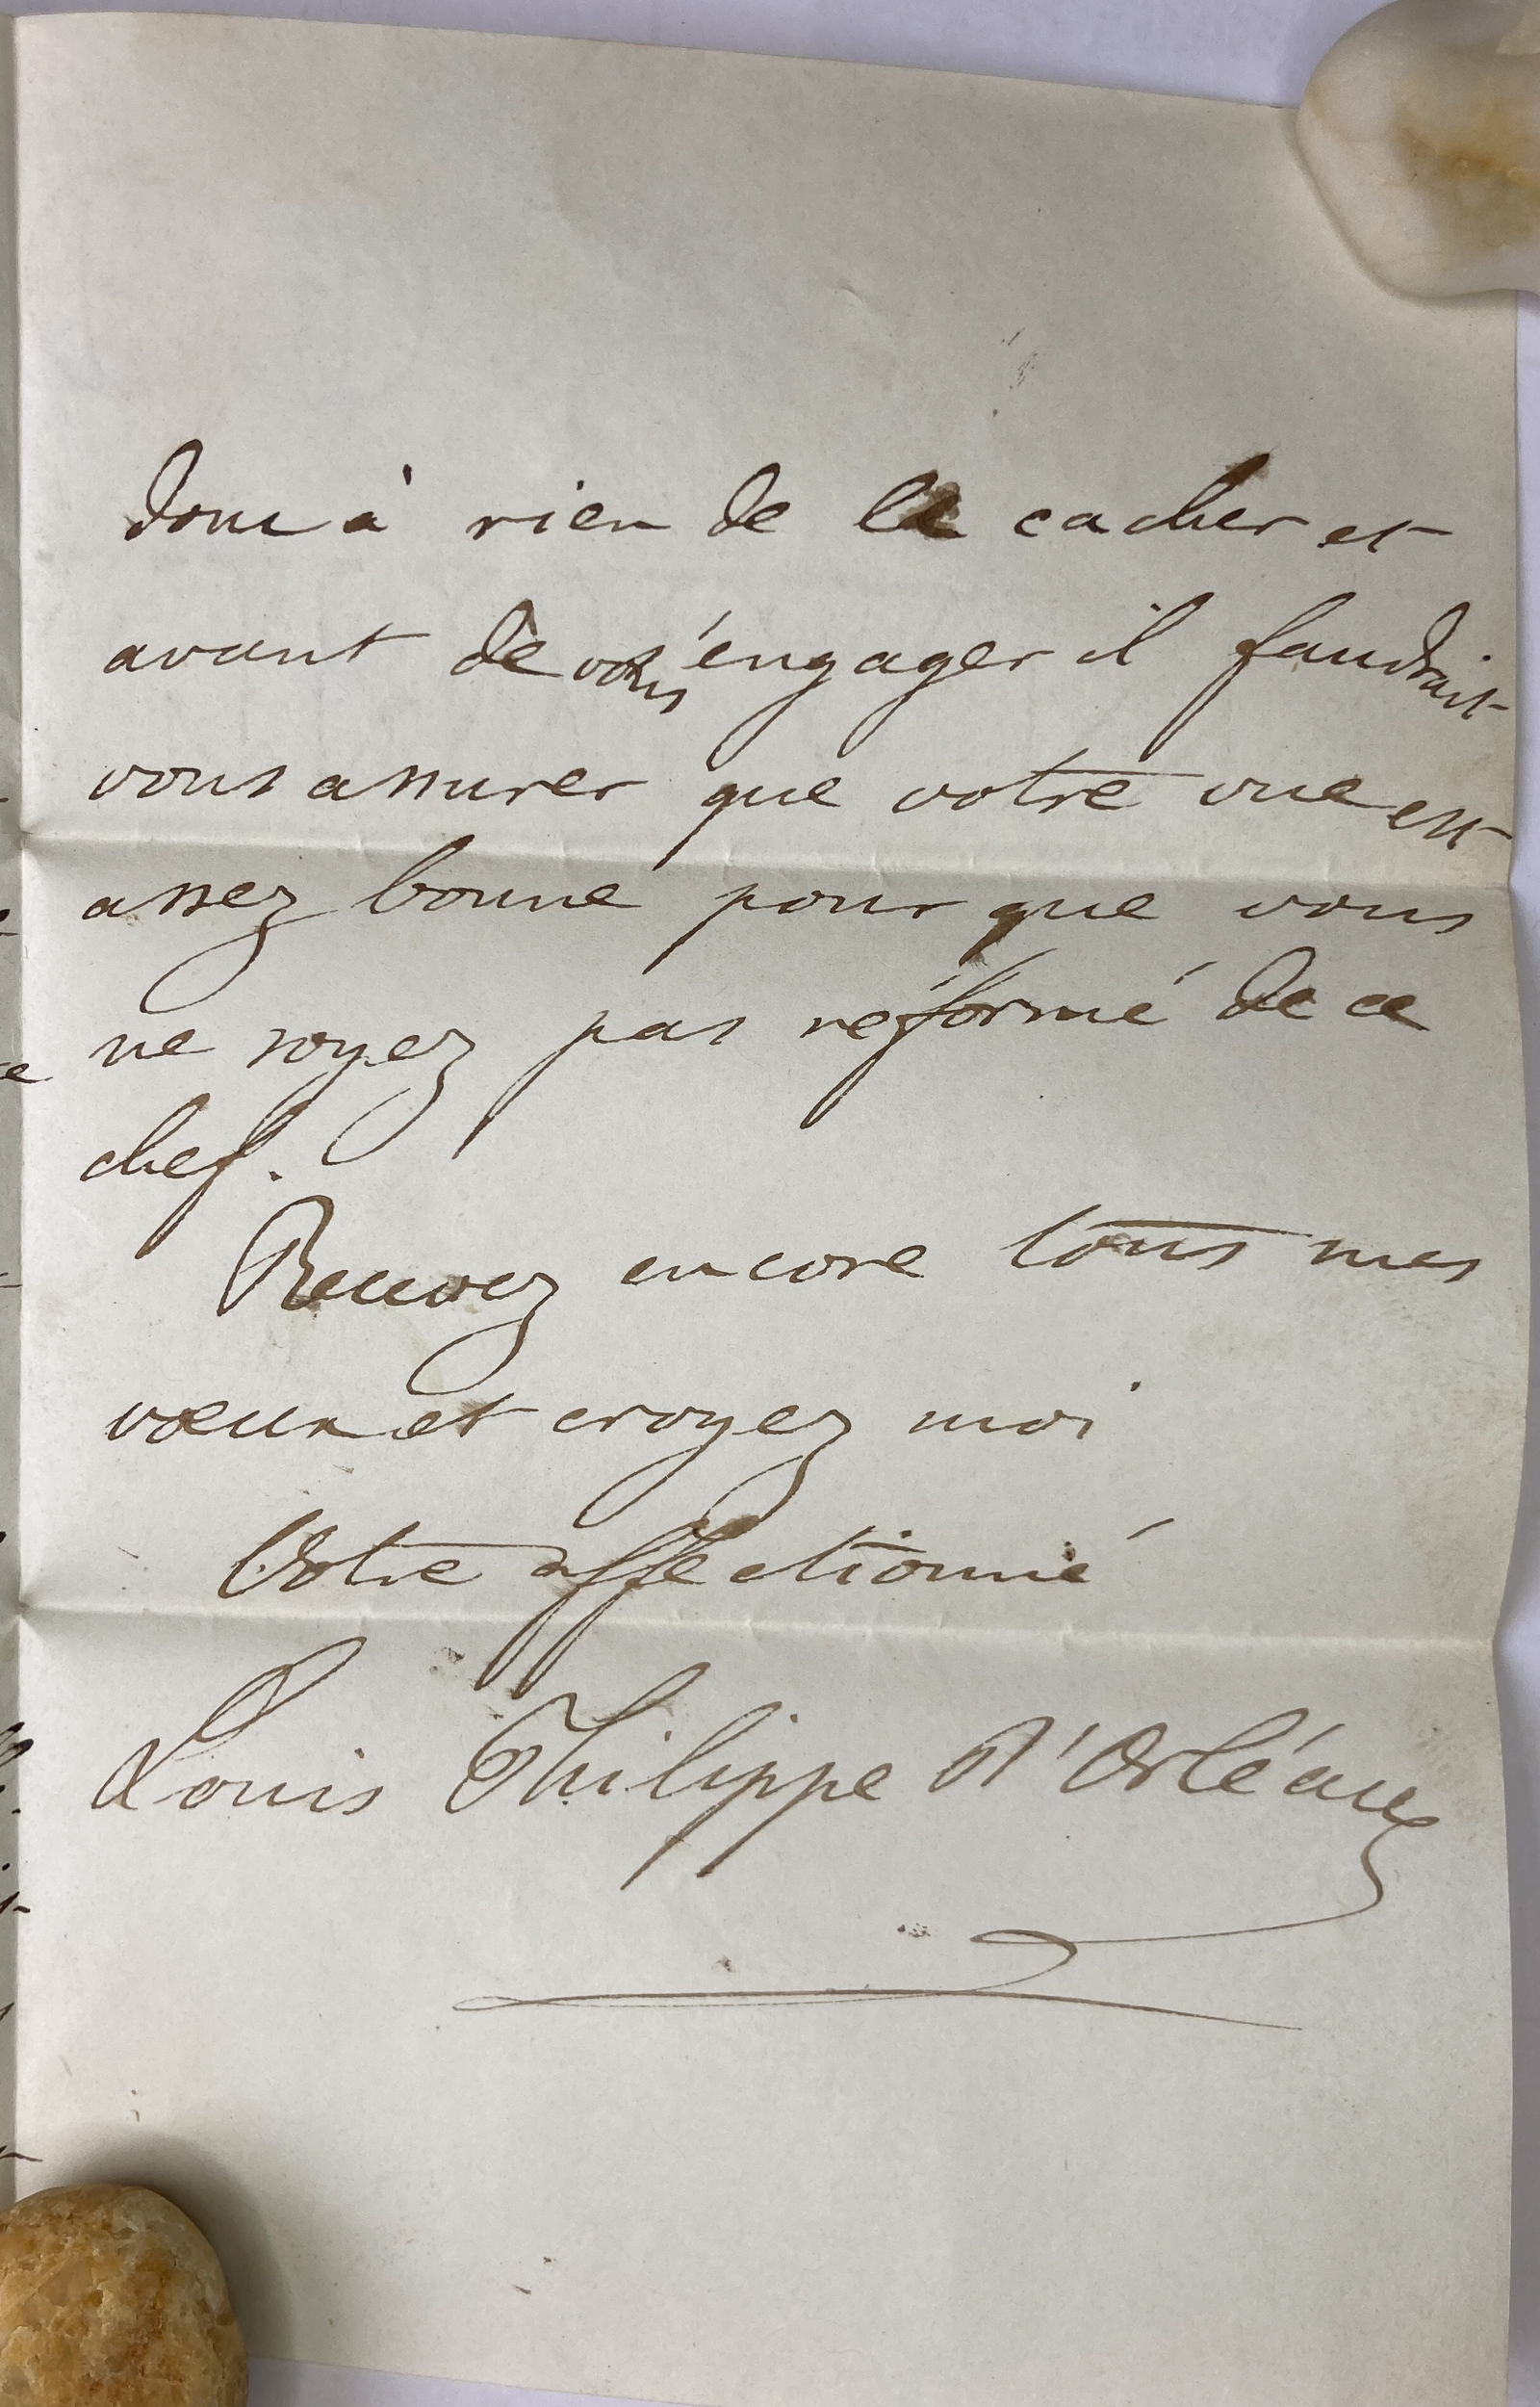 donc à rien de le cacher et
avant de vous engager il faudrait
vous assurer que votre vue est
assez bonne pour que vous
ne soyez pas réformé de ce
chef.
Recevez encore tous mes
vœux et croyez moi
Votre affectionné
Louis Philippe d'Orléans